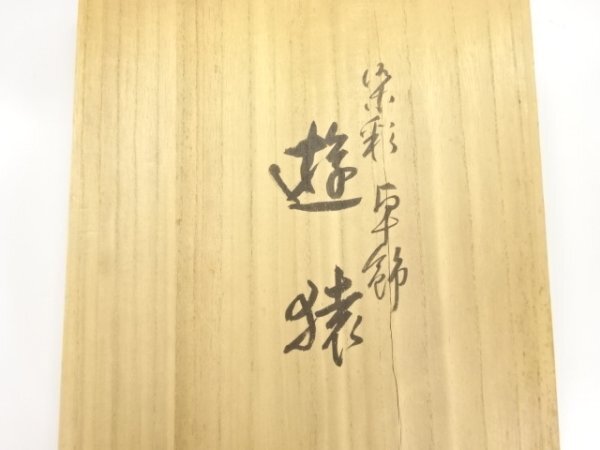 染彩卓飾
遊猿